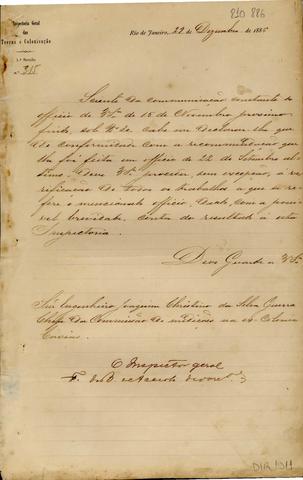 810 886
Inspectoria Geral
das
Terras e Colonisação
Rio de Janeiro, 22 de Dezembro de 1886
2ª Secção
Nº 315
Sciente da communicação constante do
officio de VSª de 15 de Novembro proximo
findo, sob Nº cabe-me declarar-lhe que
de conformidade com a recommendação que
lhe foi feita em officio de 22 de Setembro ul-
timo, deve VSª proceder, sem excepção, a ve-
rificação de todos os trabalhos a que se re-
fere o mencionado officio, dando com a possi-
vel brevidade, conta do resultado a esta
Inspectoria.
Deos Guarde a VSª
Snr Engenheiro Joaquim Christino da Silva
Chefe da Commissão de medições na ex-Colonia
Caxias
O Inspector geral
F. de B. e Accioli de
DIR 1911